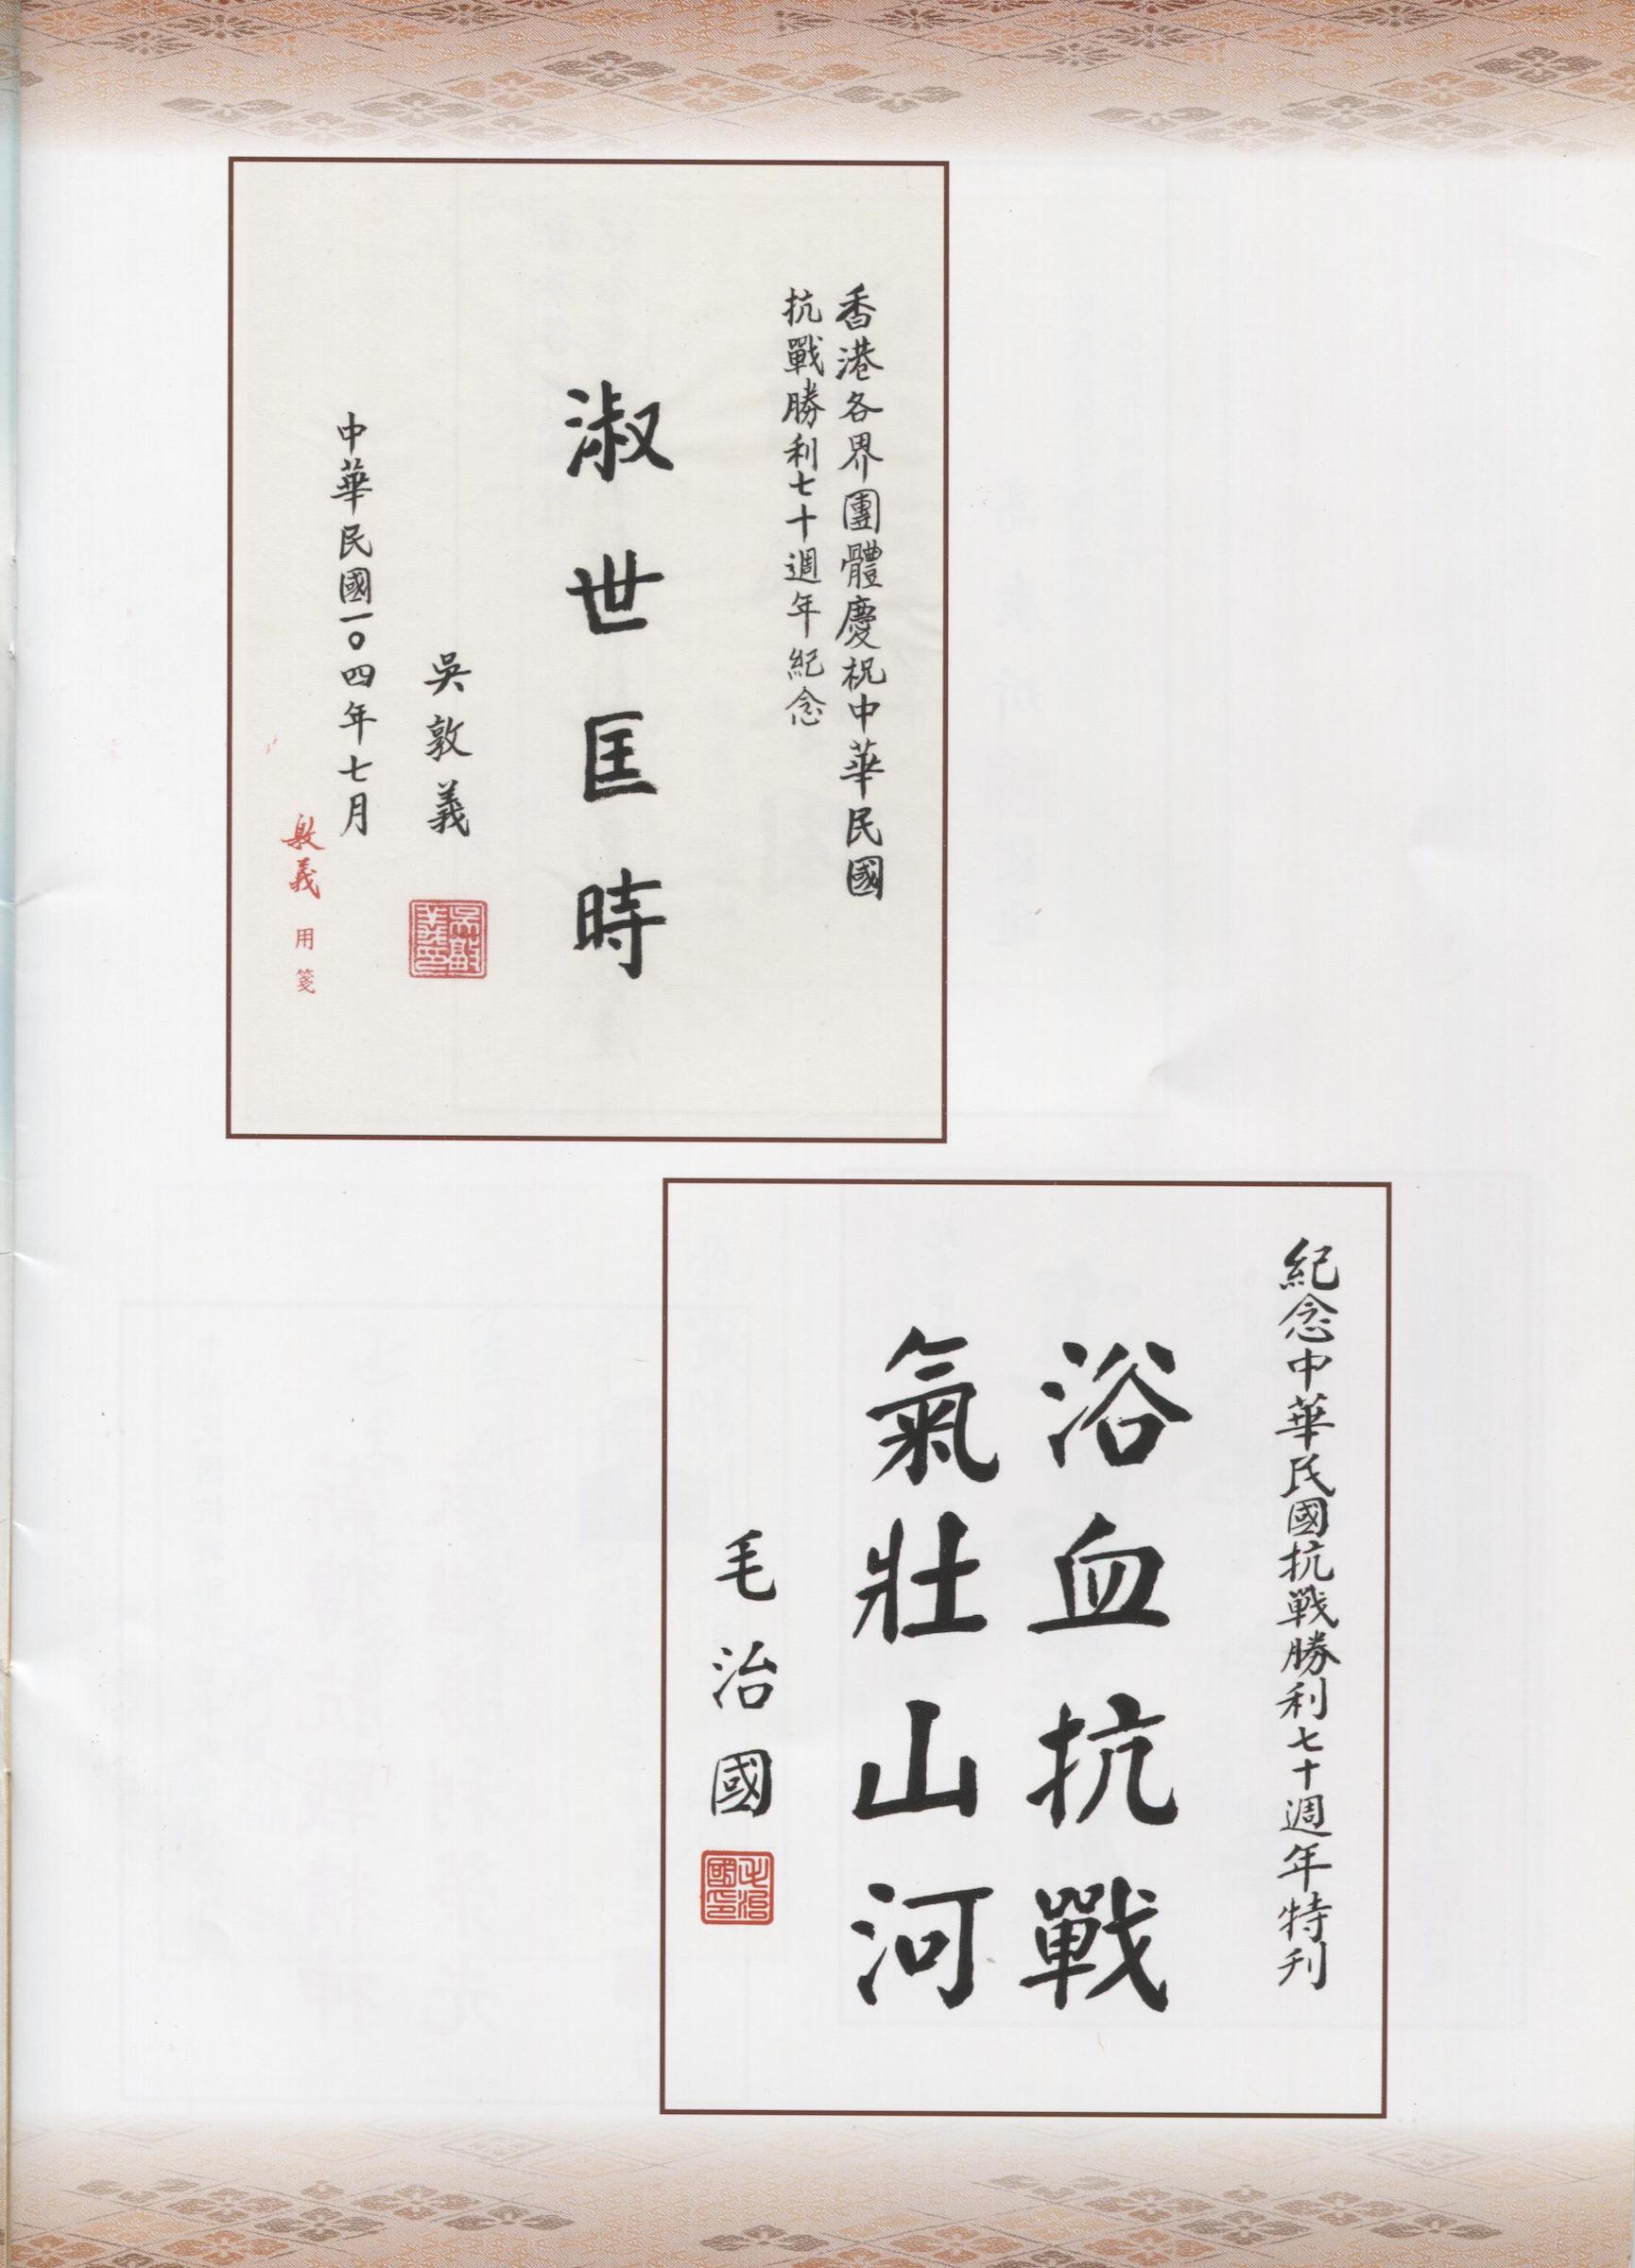 香港各界團體慶祝中華民國
抗戰勝利七十週年紀念
淑世匡時
吳敦義
吳敦義印
中華民國一〇四年七月
敦義用箋
紀念中華民國抗戰勝利七十週年特刋
浴血抗戰
氣壯山河
毛治國
毛治國印